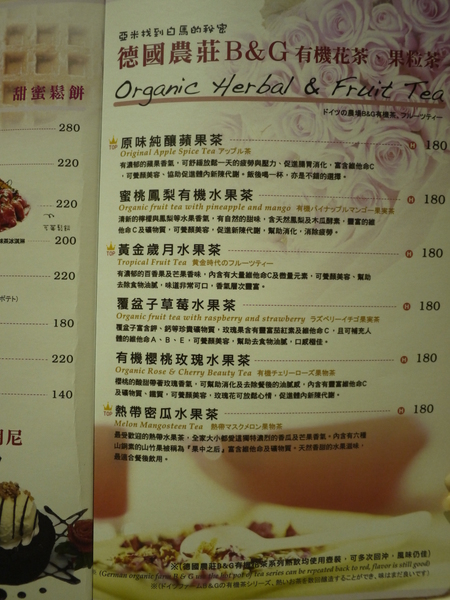 甜蜜鬆餅
280
220
220
200
220
180
220
140
亞米找到白馬的秘密
德國農莊B&G有機花茶、果粒茶
Organic Herbal & Fruit Tea
ドイツの農場B&G有機茶、フルーツティー
TOP 原味純釀蘋果茶 H 180
Original Apple Spice Tea アップル茶
有濃郁的蘋果香氣，可舒緩放鬆一天的疲勞與壓力、促進腸胃消化，富含維他命C
、可養顏美容、協助促進體內新陳代謝。飯後喝一杯，亦是不錯的選擇。
蜜桃鳳梨有機水果茶 H 180
Organic fruit tea with pineapple and mango 有機パイナップルマンゴー果実茶
清新的檸檬與鳳梨等水果香氣，有自然的甜味，含天然鳳梨及木瓜酵素，豐富的維
他命C及礦物質，可養顏美容、促進新陳代謝、幫助消化，消除疲勞。
TOP 黃金歲月水果茶 H 180
Tropical Fruit Tea 黄金時代のフルーツティー
有濃郁的百香果及芒果香味，內含有大量維他命C及微量元素，可養顏美容、幫助
去除食物油膩，味道非常可口，香氣層次豐富。
覆盆子草莓水果茶 H 180
Organic fruit tea with raspberry and strawberry ラズベリーイチゴ果実茶
覆盆子富含鉀、鈣等珍貴礦物質，玫瑰果含有豐富茄紅素及維他命C，且可補充人
體的維他命A、B、E，可養顏美容，幫助去除食物油膩，口感極佳。
有機櫻桃玫瑰水果茶 H 180
Organic Rose & Cherry Beauty Tea 有機チェリーローズ果物茶
櫻桃的酸甜帶著玫瑰香氣，可幫助消化及去除餐後的油膩感，內含有豐富維他命C
及礦物質、鐵質，可養顏美容，玫瑰花可放鬆心情，促進體內新陳代謝。
TOP 熱帶密瓜水果茶 H 180
Melon Mangosteen Tea 熱帯マスクメロン果物茶
最受歡迎的熱帶水果茶，全家大小都愛這獨特濃烈的香瓜及芒果香氣。內含有六種
山銅素的山竹果被稱為「果中之后」富含維他命及礦物質。天然香甜的水果滋味，
最適合餐後飲用。